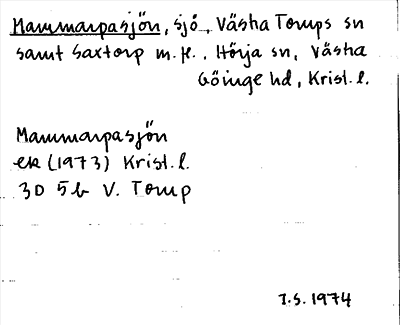 Mammarpasjön, sjö, Västra Torups sn
samt Saxtorp m.fl., Hörja sn, Västra
Göinge hd, Krist.l.
Mammarpasjön
ek (1973) Krist.l.
3D 5b V. Torup
7.5.1974